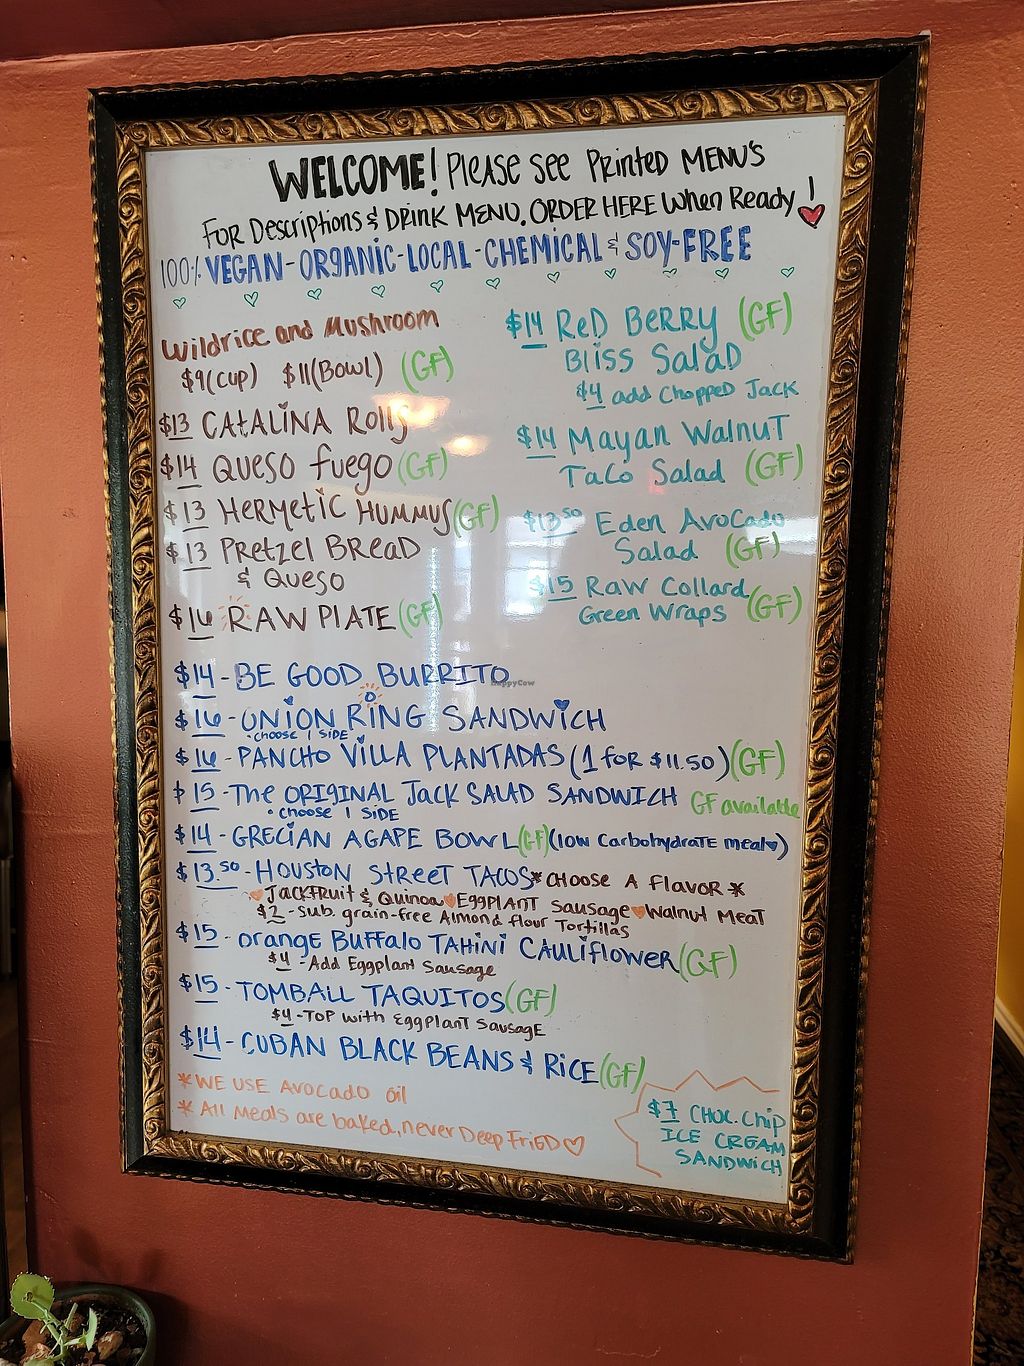 WELCOME! Please see Printed MENU'S
For Descriptions & Drink MENU. ORDER HERE When Ready!
100% VEGAN-ORGANIC-LOCAL-CHEMICAL & SOY-FREE
Wildrice and Mushroom
$9(cup) $11(Bowl) (GF)
$13 CATALINA Rolls
$14 Queso fuego (GF)
$13 Hermetic Hummus (GF)
$13 Pretzel Bread
& Queso
$16 RAW PLATE (GF)
$14 Red Berry (GF)
Bliss Salad
$4 add Chopped Jack
$14 Mayan Walnut
Taco Salad (GF)
$13.50 Eden Avocado
Salad (GF)
$15 Raw Collard
Green Wraps (GF)
$14 - BE GOOD BURRITO
HappyCow
$16 - UNION RING SANDWICH
• choose 1 SIDE
$16 - PANCHO VILLA PLANTADAS (1 for $11.50) (GF)
$15 - The ORIGINAL Jack SALAD SANDWICH GF available
• choose 1 SIDE
$14 - GRECIAN AGAPE BOWL (GF) (low Carbohydrate meal)
$13.50 - Houston Street TACOS * CHOOSE A flavor *
Jackfruit & Quinoa EGGPLANT Sausage Walnut Meat
$2 - sub. grain-free Almond flour Tortillas
$15 - orange Buffalo TAHINI CAULIFLOWER (GF)
$4 - Add Eggplant Sausage
$15 - TOMBALL TAQUITOS (GF)
$4 - TOP with Eggplant Sausage
$14 - CUBAN BLACK BEANS & RICE (GF)
* WE USE Avocado oil
* All Meals are baked, never Deep FRIED
$7 CHOC. Chip
ICE CREAM
SANDWICH